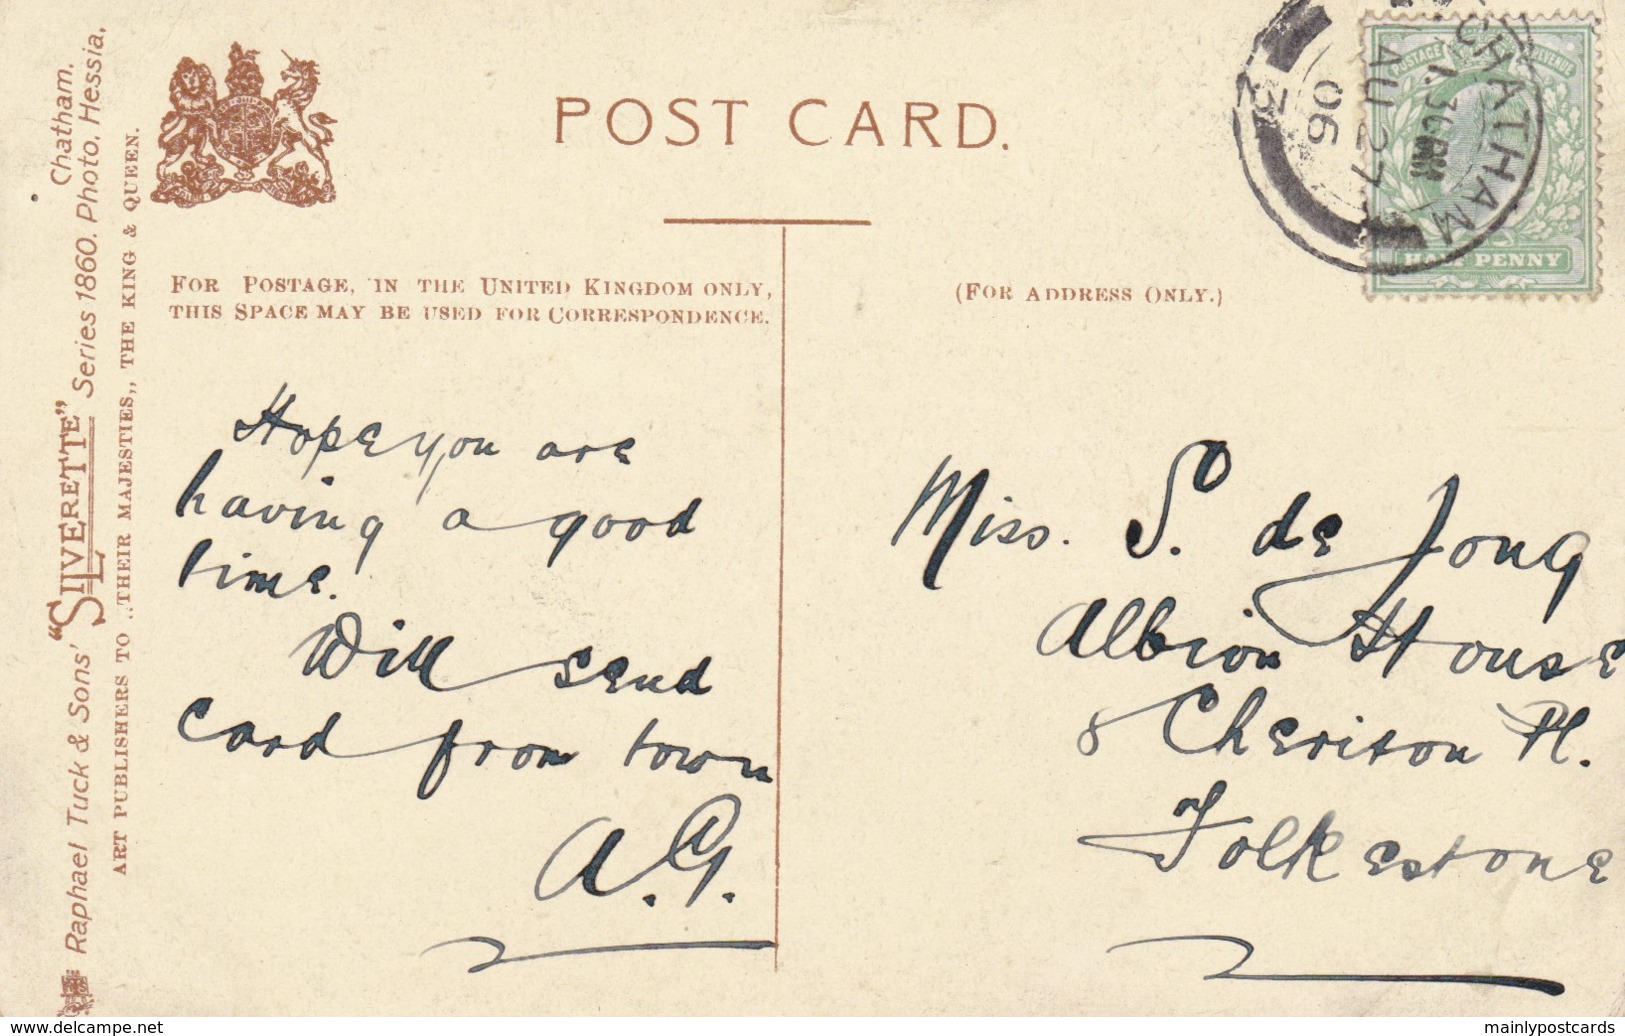 POST CARD.
FOR POSTAGE, IN THE UNITED KINGDOM ONLY,
THIS SPACE MAY BE USED FOR CORRESPONDENCE.
(FOR ADDRESS ONLY.)
Hope you are
having a good
time.
Will send
card from town
A.G.
Miss. S. de Jong
Albion House
8 Cheriton Pl.
Folkestone
Raphael Tuck & Sons' "SILVERETTE" Series 1860. Photo. Hessia.
Chatham.
ART PUBLISHERS TO „THEIR MAJESTIES„ THE KING & QUEEN.
CHATHAM
AU 27
06
23
POSTAGE & REVENUE
HALF PENNY
www.delcampe.net
mainlypostcards